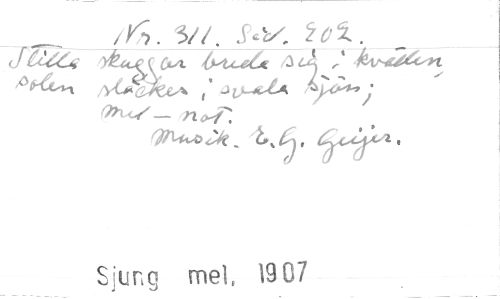 Nr. 311. Sid. 202.
Stilla skuggor breda sig i kvällen,
solen släckes i svala sjön;
med - not.
Musik. E. G. Geijer.
Sjung mel. 1907